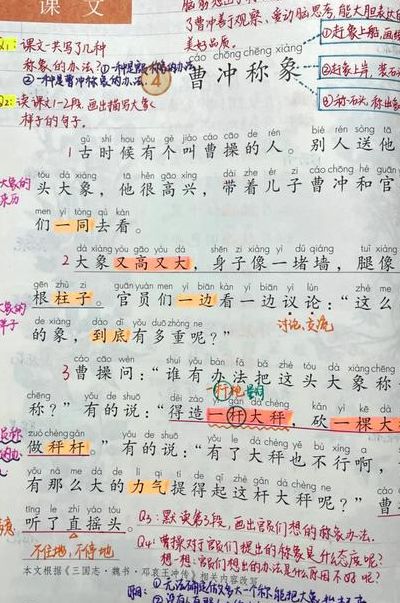 课文
了曹冲善于观察、爱动脑思考,能大胆表达的
美好品质。
Q1:课文一共写了几种
称象的办法?
①赶象上船,画线
cáo chōng chēng xiàng
4 曹冲称象
②赶象上岸,装石
③称石头,称出象
Q2:读课文1-2段,画出描写大象
样子的句子。
gǔ shí hou yǒu gè jiào cáo cāo de rén bié rén sòng tā
1古时候有个叫曹操的人。别人送他
大象的
来历
tóu dà xiàng tā hěn gāo xìng dài zhe ér zi cáo chōng hé guān
头大象,他很高兴,带着儿子曹冲和官
men yì tóng qù kàn
们一同去看。
dà xiàng yòu gāo yòu dà shēn zi xiàng yì dǔ qiáng tuǐ xiàng
2大象又高又大,身子像一堵墙,腿像
gēn zhù zi guān yuán men yì biān kàn yì biān yì lùn zhè me
根柱子。官员们一边看一边议论:“这么
大象的
样子
讨论,交流
de xiàng dào dǐ yǒu duō zhòng ne
的象,到底有多重呢?”
cáo cāo wèn shuí yǒu bàn fǎ bǎ zhè tóu dà xiàng chēng
3曹操问:“谁有办法把这头大象称
chēng yǒu de shuō děi zào yì gǎn dà chèng kǎn yì kē dà
称?”有的说:“得造一杆大秤,砍一棵大
zuò chèng gǎn yǒu de shuō yǒu le dà chèng yě bù xíng a
做秤杆。”有的说:“有了大秤也不行啊,
yǒu nà me dà de lì qi tí de qǐ zhè gǎn dà chèng ne cáo
有那么大的力气提得起这杆大秤呢?”曹
tīng le zhí yáo tóu
听了直摇头。
不住地,不停地
Q3:默读第3段,画出官员们想的称象办法。
Q4:曹操对于官员们提出的称象是什么态度呢?
想一想:官员们想出的办法是什么原因不好呢?
本文根据《三国志·魏书·邓哀王冲传》相关内容改写。